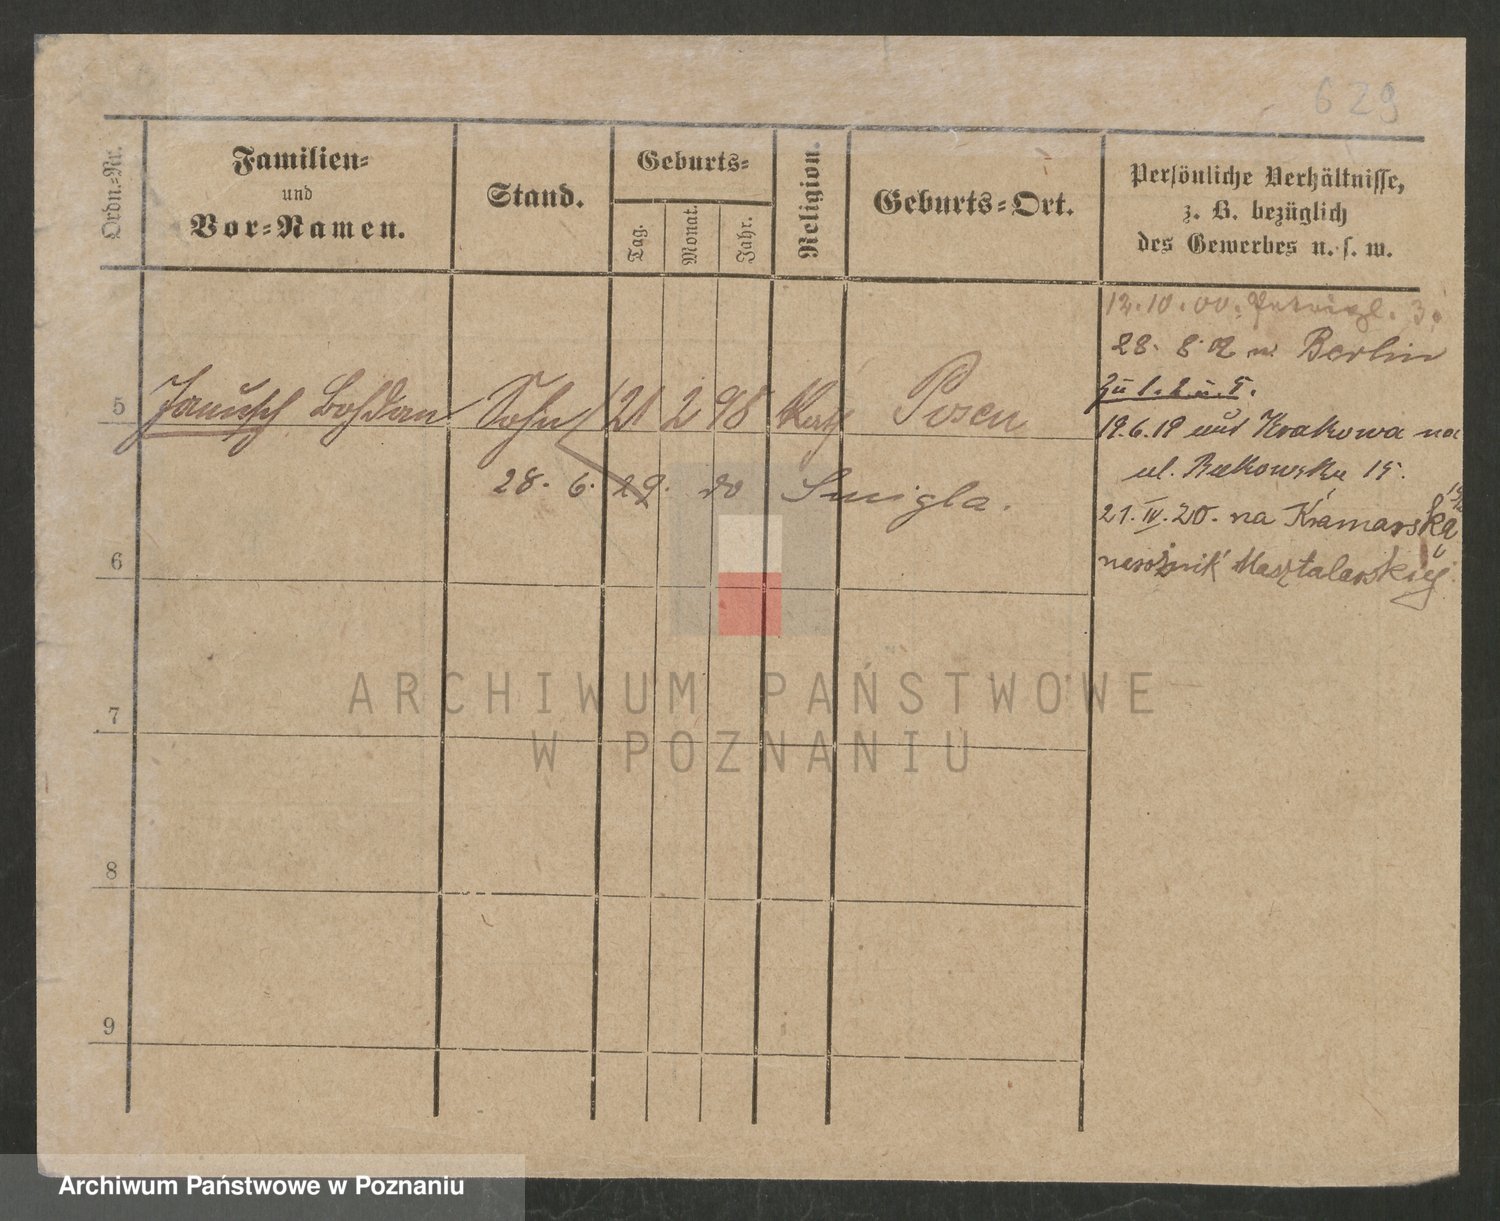 629
Ordn.-Nr.
Familien-
und
Vor-Namen.
Stand.
Geburts-
Tag.
Monat.
Jahr.
Religion.
Geburts-Ort.
Persönliche Verhältnisse,
z. B. bezüglich
des Gewerbes u. s. w.
12.10.00. 3.
28. 8. 02 n. Berlin
zu 1. 2 u. 5.
5 Bohdan Sohn 21 2 98 Kath Posen
19.6.19 aus Krakowa na
ul. 15.
28. 6. 29. do Smigla.
21. IV. 20. na Kramarską
narożnik Masztalarskiej
6
7
8
9
ARCHIWUM PAŃSTWOWE
W POZNANIU
Archiwum Państwowe w Poznaniu